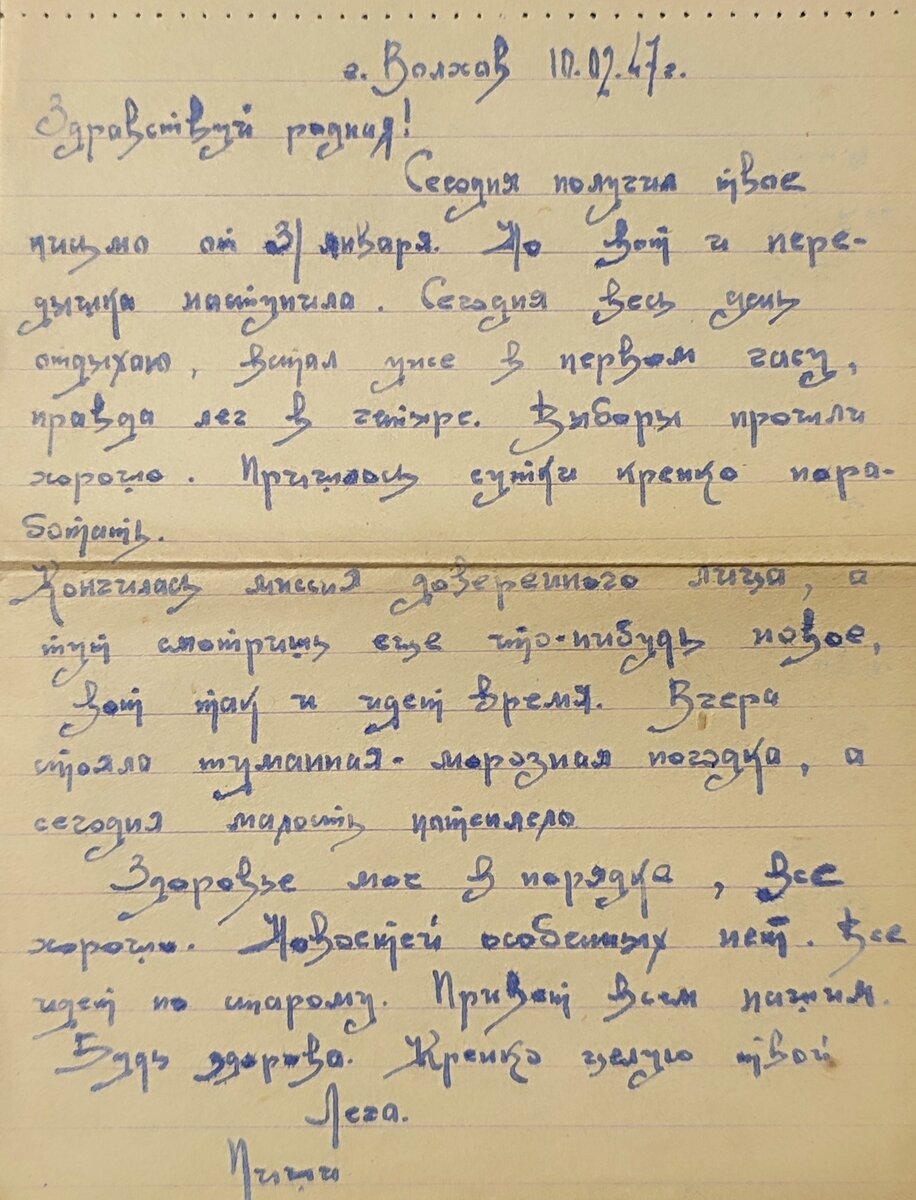 г. Волхов 10.02.47г.
Здравствуй родная!
Сегодня получил твое
письмо от 31 января. Но вот и пере-
дышка наступила. Сегодня весь день
отдыхаю, встал уже в первом часу,
правда лег в четыре. Выборы прошли
хорошо. Пришлось сутки крепко пора-
ботать.
Кончилась миссия доверенного лица, а
тут смотришь еще что-нибудь новое,
вот так и идет время. Вчера
стояла туманная-морозная погодка, а
сегодня малость потеплело
Здоровье мое в порядке, все
хорошо. Новостей особенных нет. Все
идет по старому. Привет всем нашим.
Будь здорова. Крепко целую твой
Леча.
Пиши